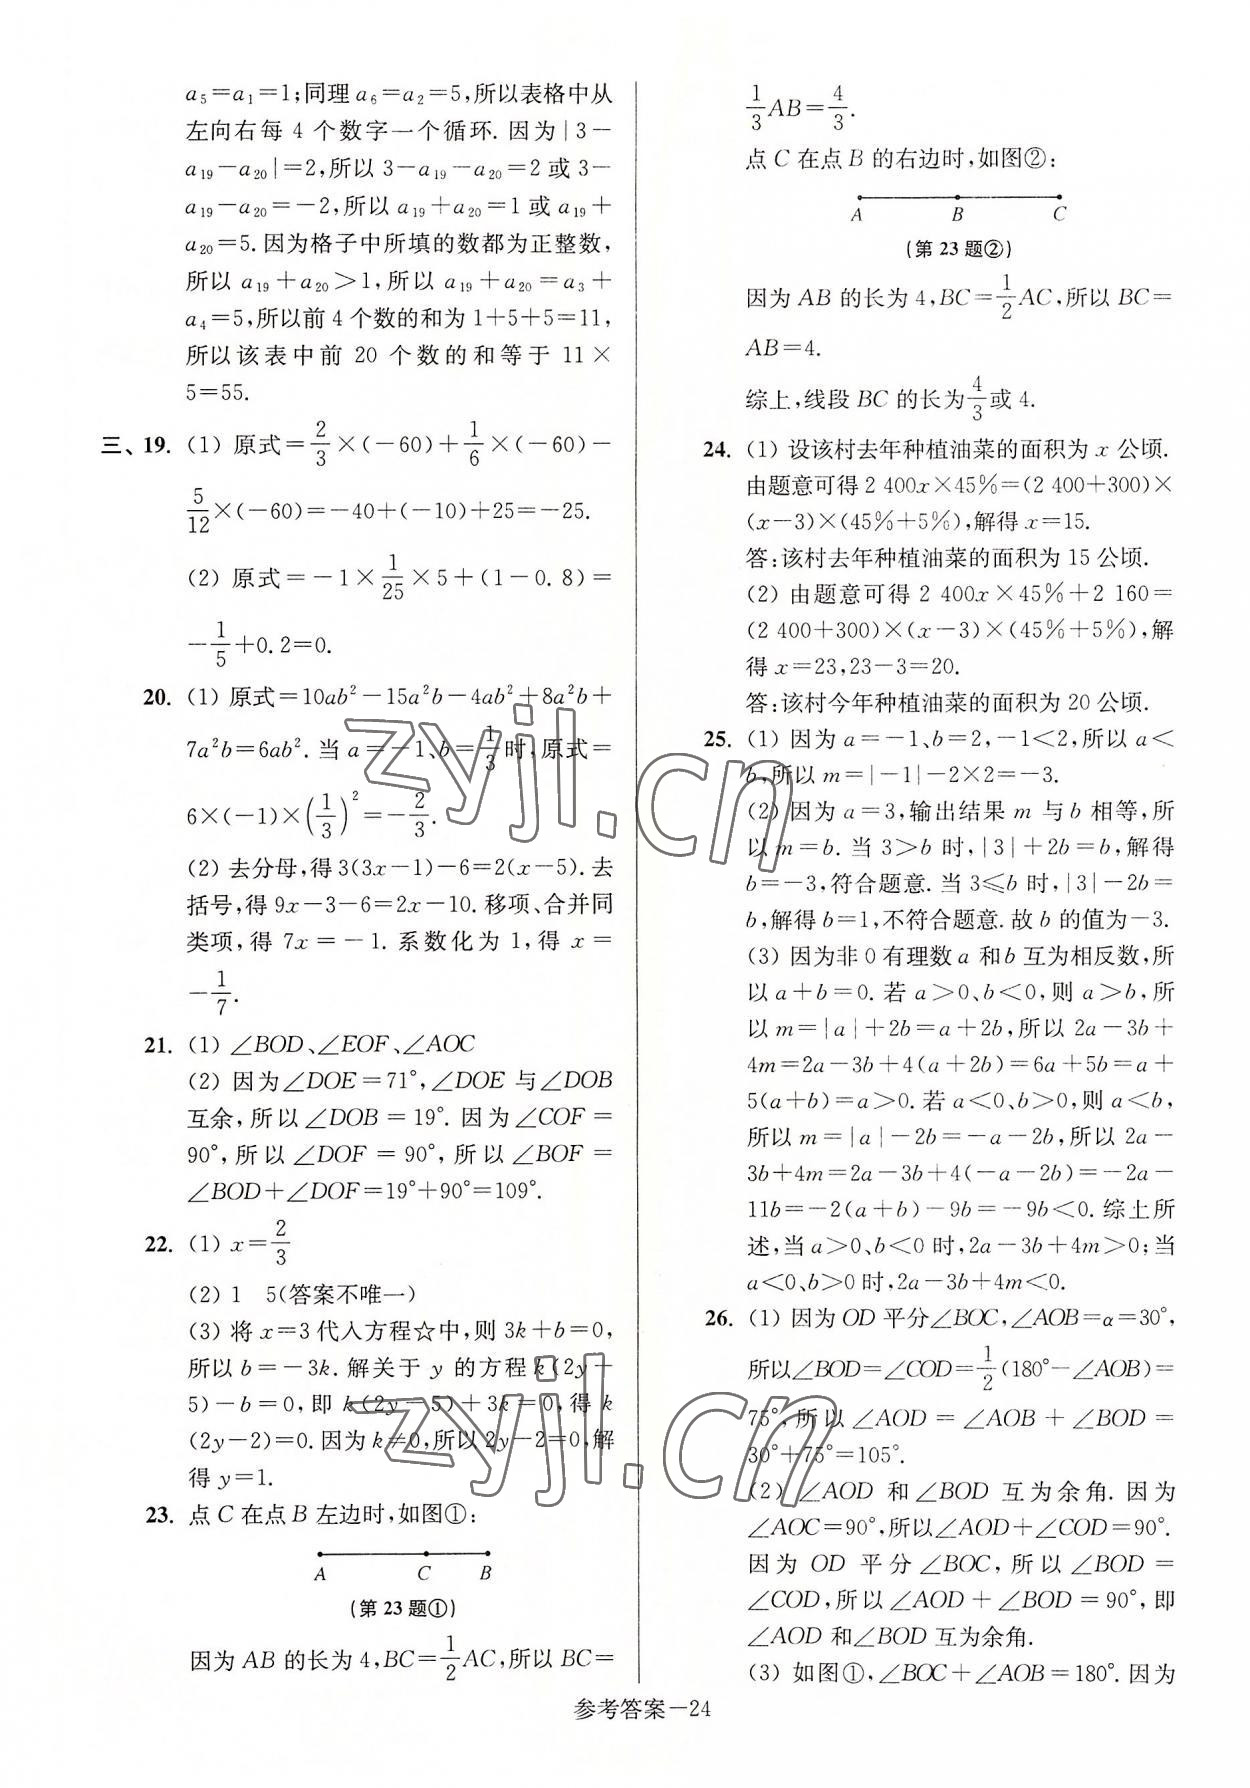 a₅=a₁=1;同理 a₆=a₂=5,所以表格中从
左向右每 4 个数字一个循环. 因为|3-
a₁₉-a₂₀|=2,所以 3-a₁₉-a₂₀=2 或 3-
a₁₉-a₂₀=-2,所以 a₁₉+a₂₀=1 或 a₁₉+
a₂₀=5. 因为格子中所填的数都为正整数,
所以 a₁₉+a₂₀>1,所以 a₁₉+a₂₀=a₃+
a₄=5,所以前 4 个数的和为 1+5+5=11,
所以该表中前 20 个数的和等于 11×
5=55.
三、19. (1) 原式=2/3×(-60)+1/6×(-60)-
5/12×(-60)=-40+(-10)+25=-25.
(2) 原式=-1×1/25×5+(1-0.8)=
-1/5+0.2=0.
20. (1) 原式=10ab²-15a²b-4ab²+8a²b+
7a²b=6ab². 当 a=-1、b=1/3时,原式=
6×(-1)×(1/3)²=-2/3.
(2) 去分母,得 3(3x-1)-6=2(x-5). 去
括号,得 9x-3-6=2x-10. 移项、合并同
类项,得 7x=-1. 系数化为 1,得 x=
-1/7.
21. (1) ∠BOD、∠EOF、∠AOC
(2) 因为∠DOE=71°,∠DOE 与∠DOB
互余,所以∠DOB=19°. 因为∠COF=
90°,所以∠DOF=90°,所以∠BOF=
∠BOD+∠DOF=19°+90°=109°.
22. (1) x=2/3
(2) 1 5(答案不唯一)
(3) 将 x=3 代入方程☆中,则 3k+b=0,
所以 b=-3k. 解关于 y 的方程 k(2y+
5)-b=0,即 k(2y-5)+3k=0,得 k
(2y-2)=0. 因为 k≠0,所以 2y-2=0,解
得 y=1.
23. 点 C 在点 B 左边时,如图①:
A C B
(第 23 题①)
因为 AB 的长为 4,BC=1/2AC,所以 BC=
1/3AB=4/3.
点 C 在点 B 的右边时,如图②:
A B C
(第 23 题②)
因为 AB 的长为 4,BC=1/2AC,所以 BC=
AB=4.
综上,线段 BC 的长为4/3或 4.
24. (1) 设该村去年种植油菜的面积为 x 公顷.
由题意可得 2 400x×45%=(2 400+300)×
(x-3)×(45%+5%),解得 x=15.
答:该村去年种植油菜的面积为 15 公顷.
(2) 由题意可得 2 400x×45%+2 160=
(2 400+300)×(x-3)×(45%+5%),解
得 x=23,23-3=20.
答:该村今年种植油菜的面积为 20 公顷.
25. (1) 因为 a=-1、b=2,-1<2,所以 a<
b,所以 m=|-1|-2×2=-3.
(2) 因为 a=3,输出结果 m 与 b 相等,所
以 m=b. 当 3>b 时,|3|+2b=b,解得
b=-3,符合题意. 当 3≤b 时,|3|-2b=
b,解得 b=1,不符合题意. 故 b 的值为-3.
(3) 因为非 0 有理数 a 和 b 互为相反数,所
以 a+b=0. 若 a>0、b<0,则 a>b,所
以 m=|a|+2b=a+2b,所以 2a-3b+
4m=2a-3b+4(a+2b)=6a+5b=a+
5(a+b)=a>0. 若 a<0、b>0,则 a<b,
所以 m=|a|-2b=-a-2b,所以 2a-
3b+4m=2a-3b+4(-a-2b)=-2a-
11b=-2(a+b)-9b=-9b<0. 综上所
述,当 a>0、b<0 时,2a-3b+4m>0;当
a<0、b>0 时,2a-3b+4m<0.
26. (1) 因为 OD 平分∠BOC,∠AOB=α=30°,
所以∠BOD=∠COD=1/2(180°-∠AOB)=
75°,所以∠AOD=∠AOB+∠BOD=
30°+75°=105°.
(2) ∠AOD 和∠BOD 互为余角. 因为
∠AOC=90°,所以∠AOD+∠COD=90°.
因为 OD 平分∠BOC,所以∠BOD=
∠COD,所以∠AOD+∠BOD=90°,即
∠AOD 和∠BOD 互为余角.
(3) 如图①,∠BOC+∠AOB=180°. 因为
参考答案—24
zyjl.cn
zyjl.cn